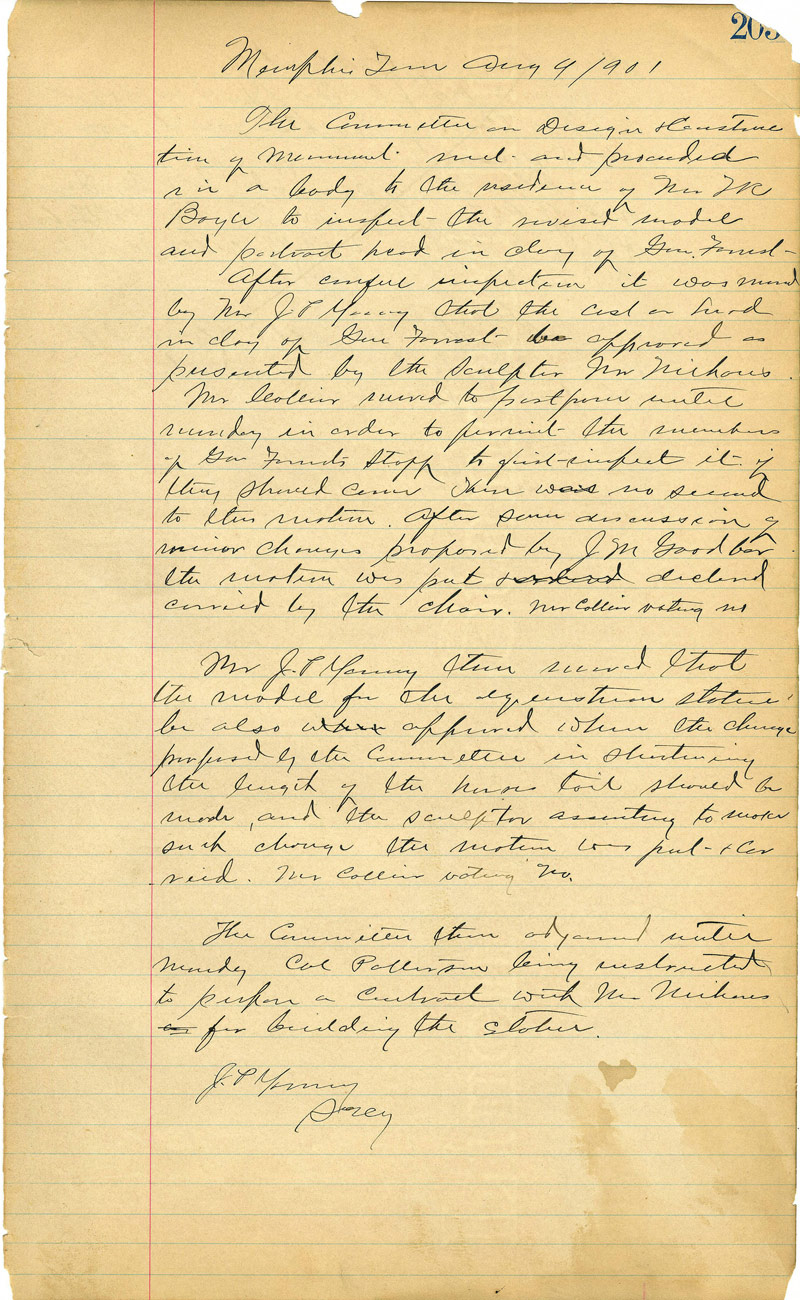 205
Memphis Tenn Aug 9/1901
The Committee on Design & Construc
tion of Monument met and proceeded
in a body to the residence of Mr T R
Boyle to inspect the revised model
and portrait head in clay of Gen. Forrest
After careful inspection it was moved
by Mr J. P. Young that the cast or head
in clay of Gen Forrest be approved as
presented by the sculptor Mr Niehaus.
Mr Collier moved to postpone until
monday in order to permit the members
of Gen Forrests Staff to first inspect it if
they should come There was no second
to this motion. After some discussion of
minor changes proposed by J M Goodbar
the motion was put & declared
carried by the chair. Mr Collier voting no
Mr J. P. Young then moved that
the model for the equestrian statue
be also approved when the change
proposed by the Committee in shortening
the length of the horses tail should be
made, and the sculptor assenting to make
such change the motion was put & car
ried. Mr Collier voting No.
The Committee then adjourned until
Monday Col Patterson being instructed
to prepare a Contract with Mr Niehaus
for building the statue.
J. P. Young
Secy